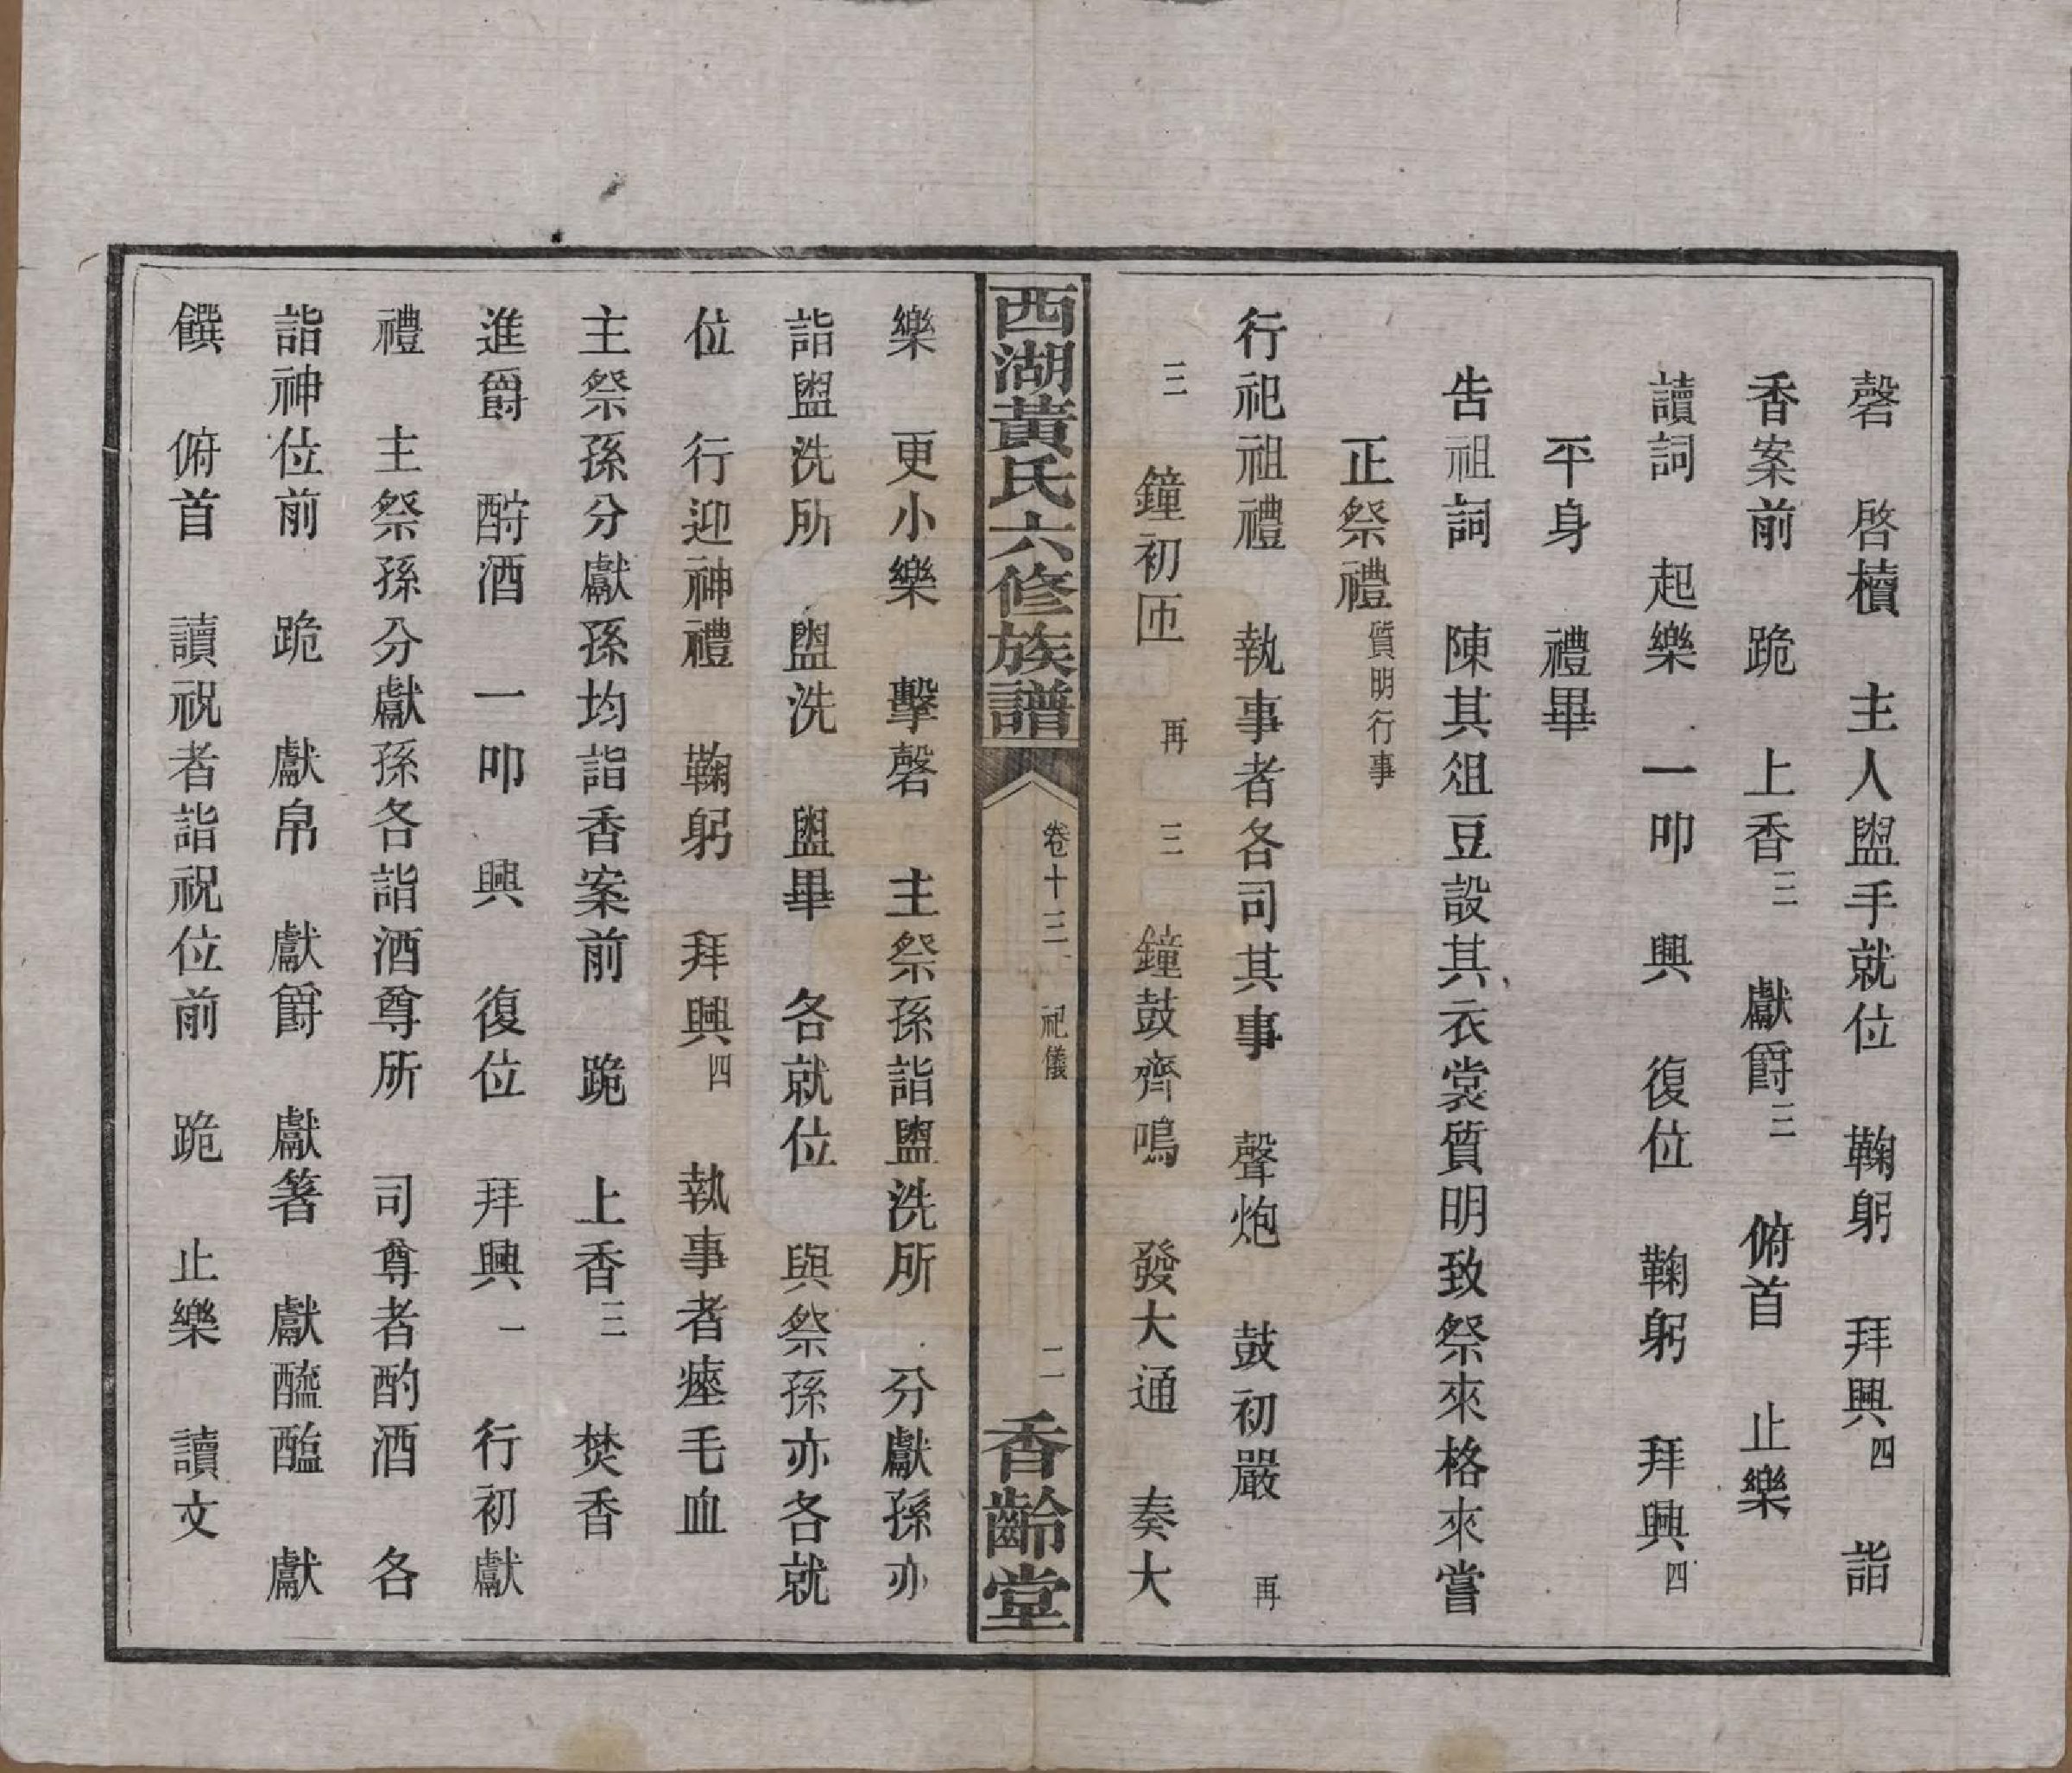 磬　啓櫝　主人盥手就位　鞠躬　拜興四　詣
香案前　跪　上香三　獻爵三　俯首　止樂
讀詞　起樂　一叩　興　復位　鞠躬　拜興四
平身　禮畢
告祖詞　陳其俎豆設其衣裳質明致祭來格來嘗
正祭禮質明行事
行祀祖禮　執事者各司其事　聲炮　鼓初嚴　再
三　鐘初匝　再　三　鐘鼓齊鳴　發大通　奏大
西湖黃氏六修族譜　卷十三　祀儀　二　香齡堂
樂　更小樂　擊磬　主祭孫詣盥洗所　分獻孫亦
詣盥洗所　盥洗　盥畢　各就位　與祭孫亦各就
位　行迎神禮　鞠躬　拜興四　執事者瘞毛血
主祭孫分獻孫均詣香案前　跪　上香三　焚香
進爵　酹酒　一叩　興　復位　拜興一　行初獻
禮　主祭孫分獻孫各詣酒尊所　司尊者酌酒　各
詣神位前　跪　獻帛　獻爵　獻箸　獻醯醢　獻
饌　俯首　讀祝者詣祝位前　跪　止樂　讀文